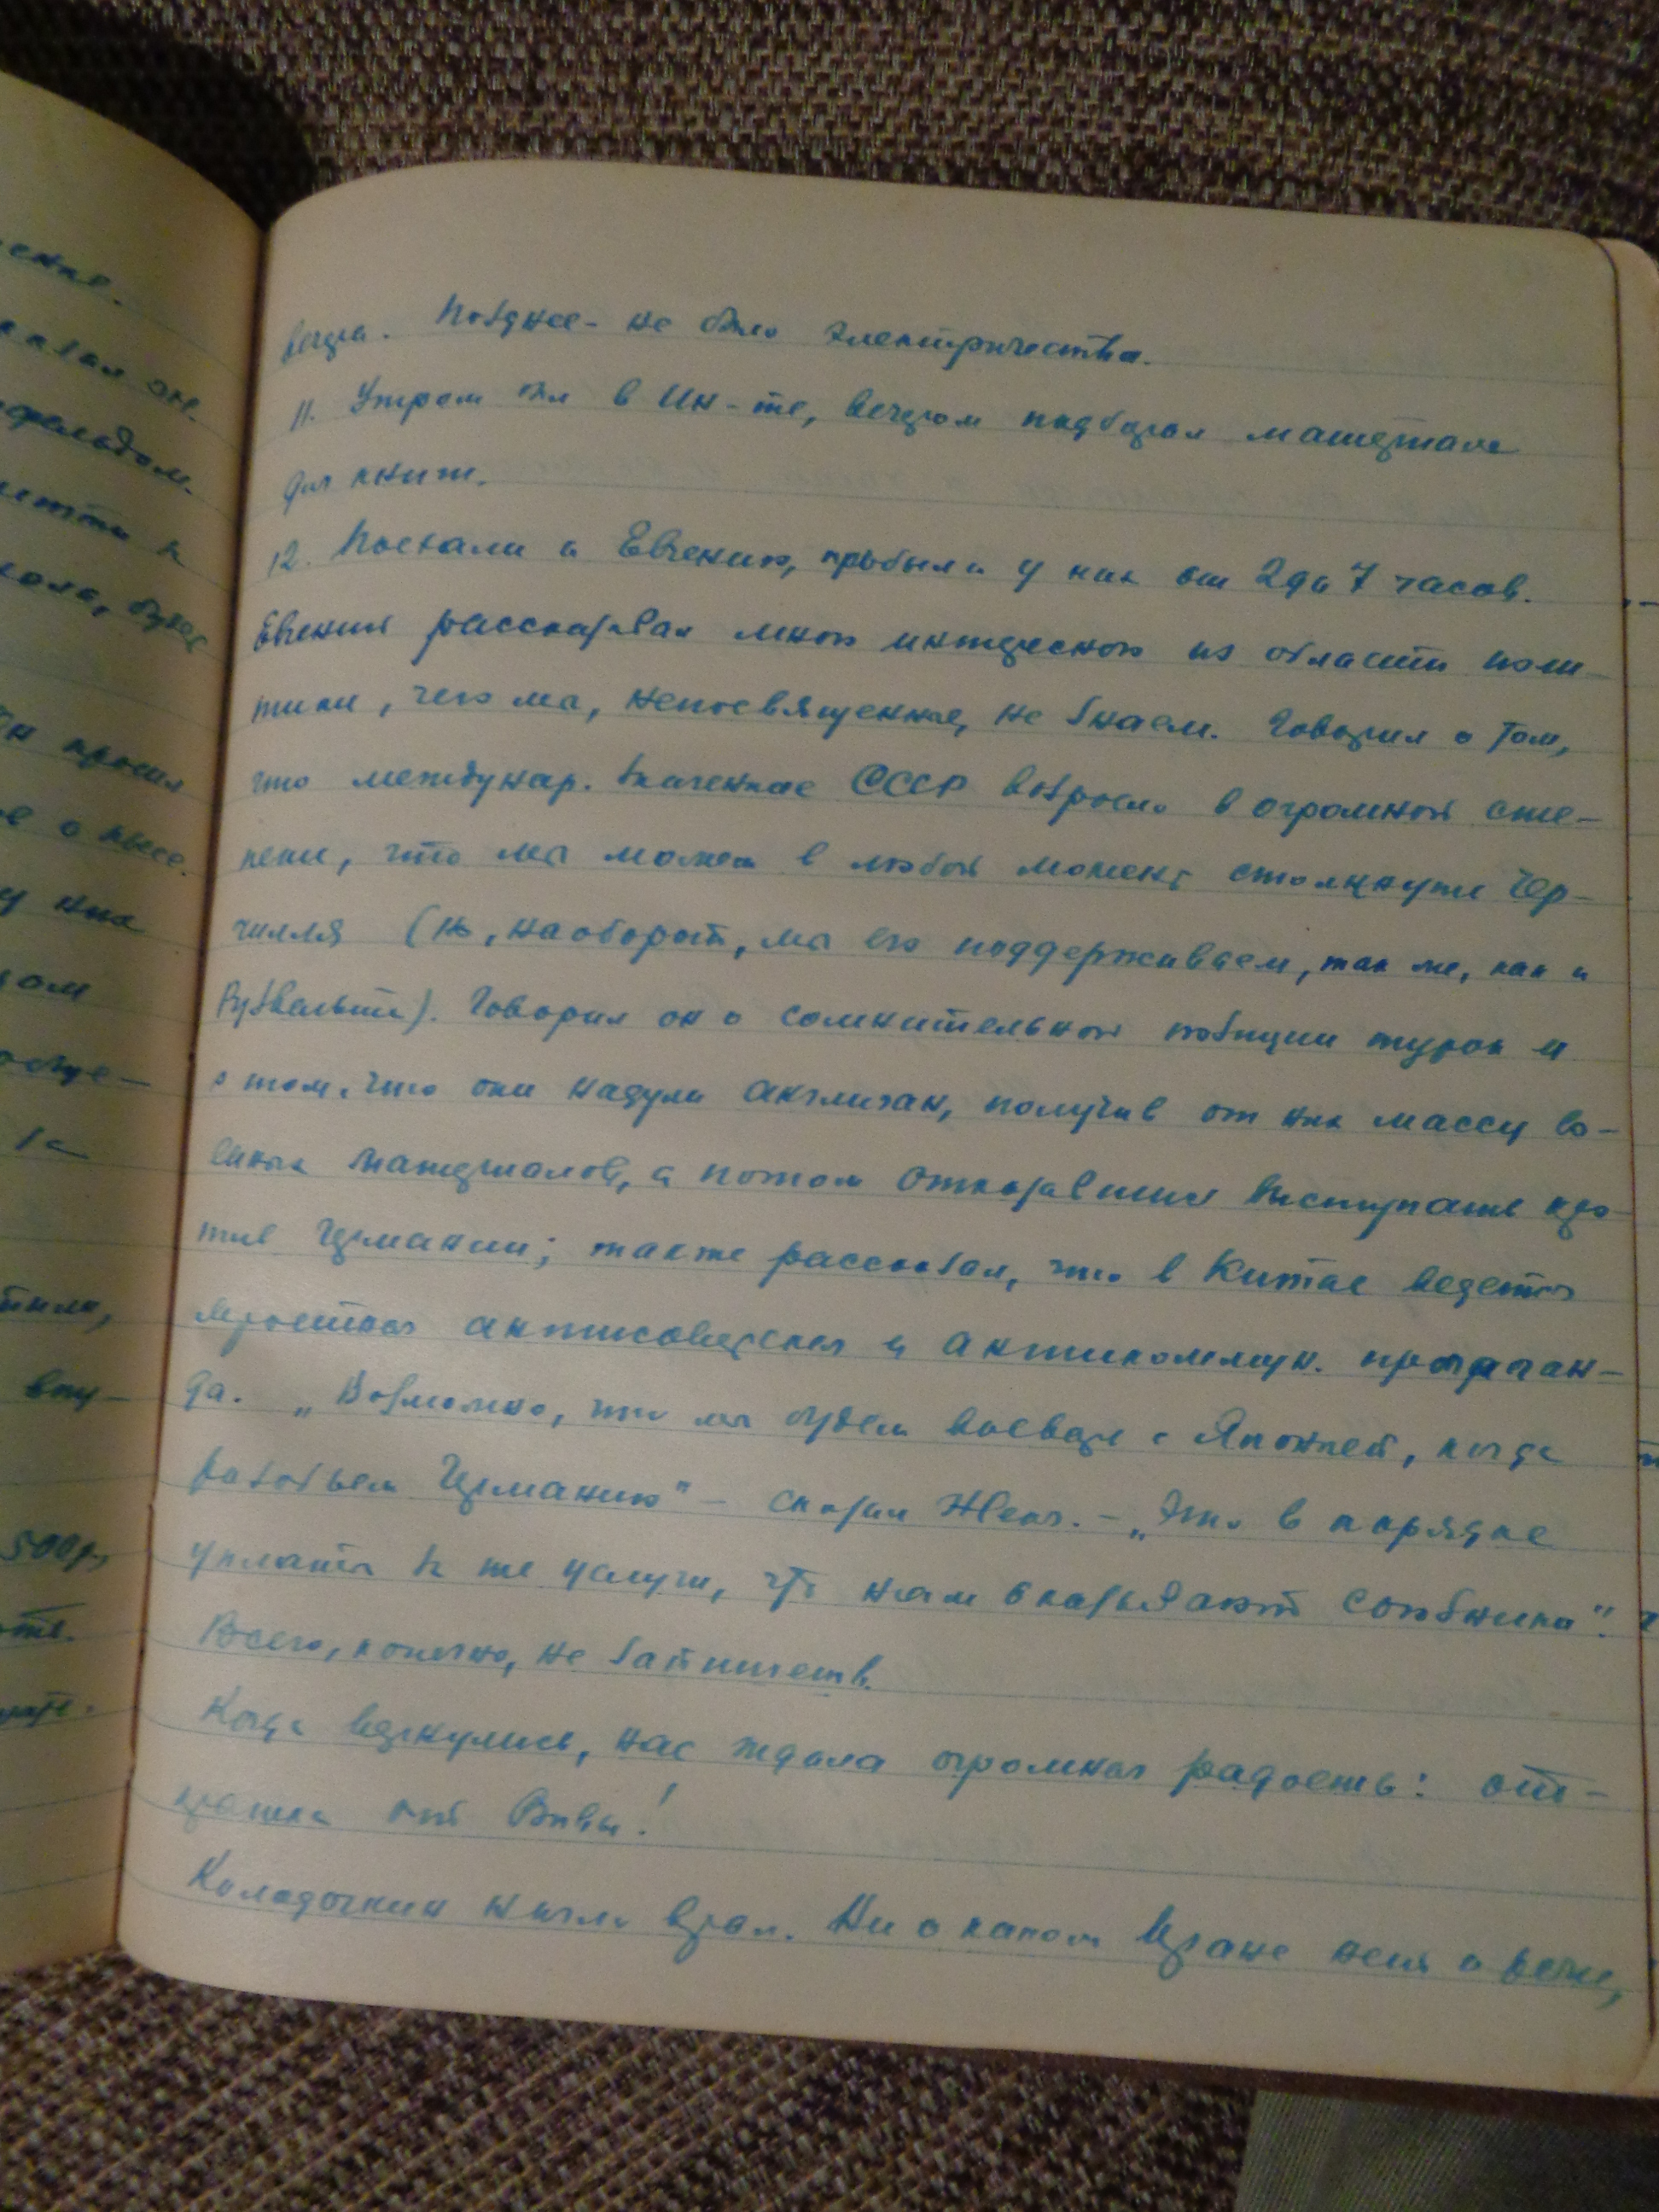 ение.
вечера. Позднее - не было электричества.
11. Утром был в Ин-те, вечером подбирал материал
для книги.
12. Поехали к Евгению, пробыли у них от 2 до 7 часов.
Евгений рассказывал много интересного из области поли-
тики, чего мы, непосвященные, не знаем. Говорил о том,
что междунар. значение СССР возросло в огромной сте-
пени, что мы можем в любой момент столкнуть Чер-
чилля (но, наоборот, мы его поддерживаем, так же, как и
Рузвельта). Говорил он о сомнительной позиции турок и
о том, что они надули англичан, получив от них массу во-
енных материалов, а потом отказавшись выступать про-
тив Германии; также рассказал, что в Китае ведется
яростная антисоветская и антикоммун. пропаган-
да. „Возможно, что мы будем воевать с Японией, когда
разобьем Германию" - сказал Женя. - „Это в порядке
уплаты за те услуги, что нам оказывают союзники".
Всего, конечно, не запишешь.
Когда вернулись, нас ждала огромная радость: от-
крытка от Вивы!
Колодочкин нагло врал. Ни о каком Иране нет и речи,